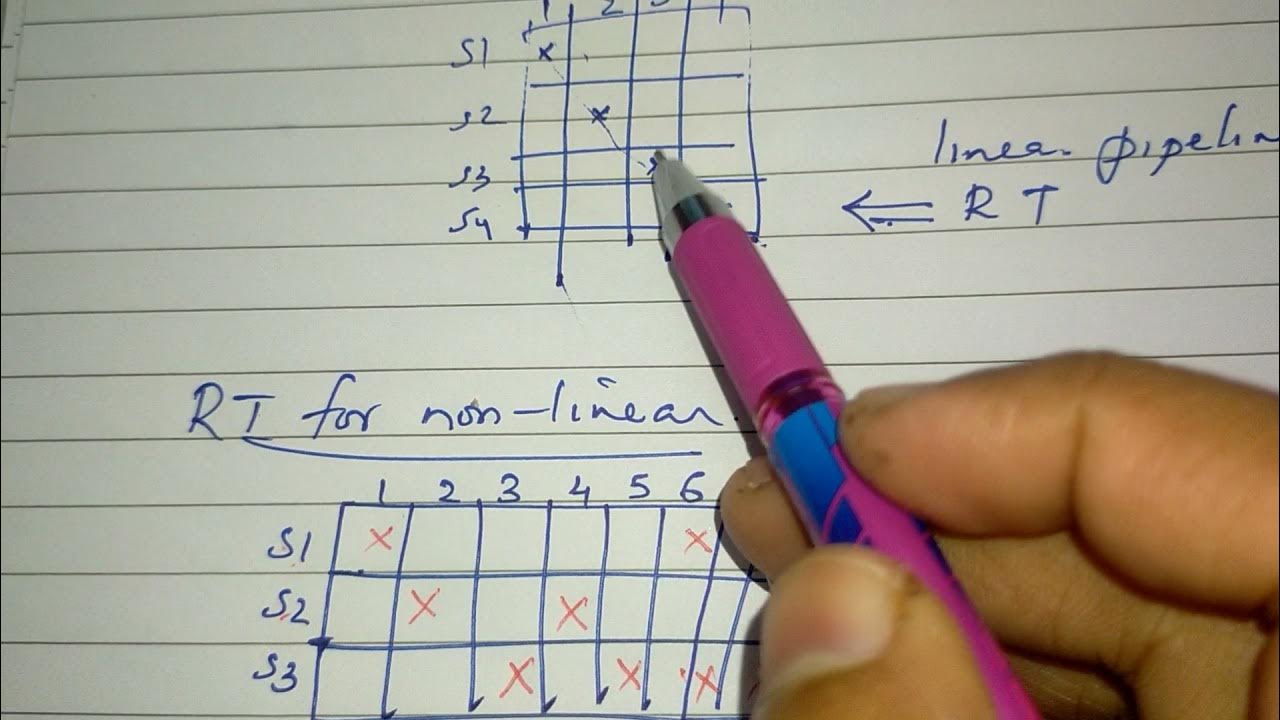 1 2 3
S1 x
S2 x
linear pipelin
S3 x
RT
S4
RT for non-linear
1 2 3 4 5 6
S1 x x
S2 x x
S3 x x x